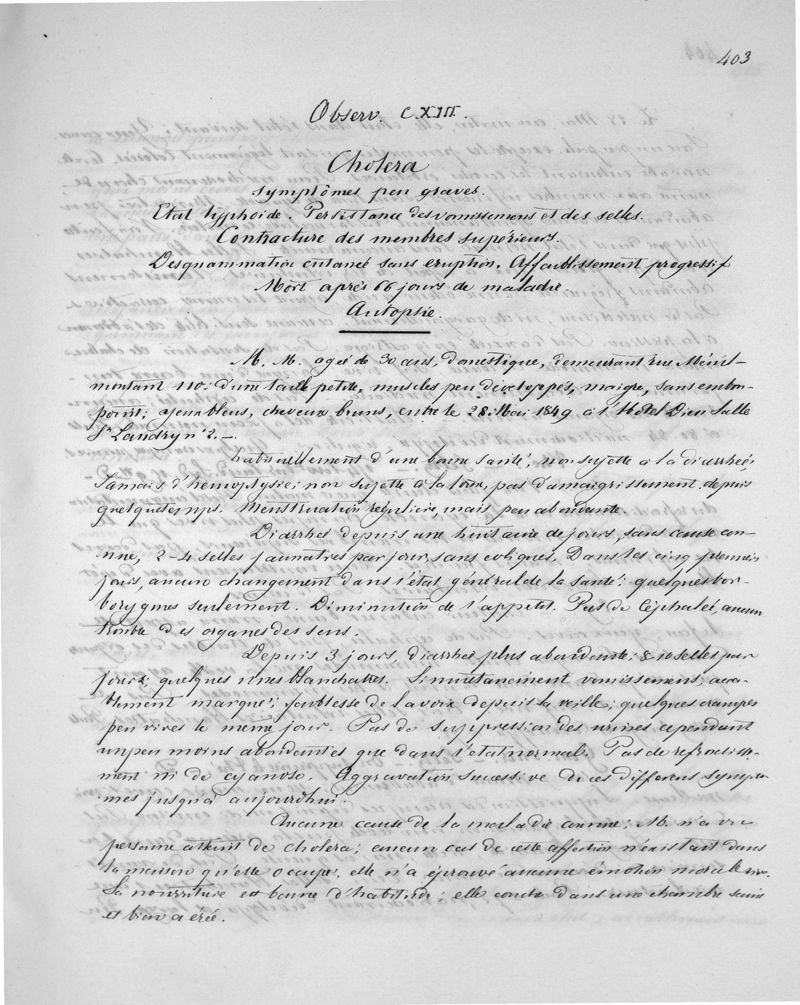 403
Observ. CXIII.
Cholera
symptômes peu graves.
Etat typhoide. Persistance des vomissemens et des selles.
Contracture des membres supérieurs.
Desquammation cutaneé sans eruption. Affaiblissement progressif
Mort aprés 66 jours de maladie.
Autopsie.
M. M. ageé de 30 ans, domestique, demeurant rue Ménil-
montant 110. d'une taille petite, muscles peu développés, maigre, sans embon-
point; yeux bleus, cheveux bruns, entre le 28 Mai 1849 à l'Hotel Dieu Salle
St Landry n° 2. —
habituellement d'une bonne santé, non sujette à la diarrheé,
Jamais d'hemoptysie; non sujette à la toux, pas d'amaigrissement depuis
quelque temps. Menstruation réguliere, mais peu abondante.
Diarrheé depuis une huitaine de jours, sans cause con-
nue, 2-4 selles jaunâtres par jour, sans coliques. Dans les cinq premiers
jours, aucun changement dans l'état général de la santé: quelques bor-
borygmes seulement. Diminution de l'appetit. Pas de Céphaleé, aucun
trouble des organes des sens.
Depuis 3 jours, diarrheé plus abondante; 8-10 selles par
jours, quelques unes blanchatres. Simultanement vomissemens, acca-
blement marqué; faiblesse de la voix depuis la veille; quelques crampes
peu vives le même jour. Pas de suppression des urines cependant
un peu moins abondantes que dans l'etat normal. Pas de refroidisse-
ment ni de cyanose. Aggravation successive de ces differens sympto-
mes jusqu'à aujourdhui.
Aucune cause de la maladie connue; M. n'a vu
personne atteint de cholera; aucun cas de cette affection n'existait dans
la maison qu'elle occupe; elle n'a éprouvé aucune émotion morale vive.
Sa nourriture est bonne d'habitude; elle couche dans une chambre saine
et bien aérée.